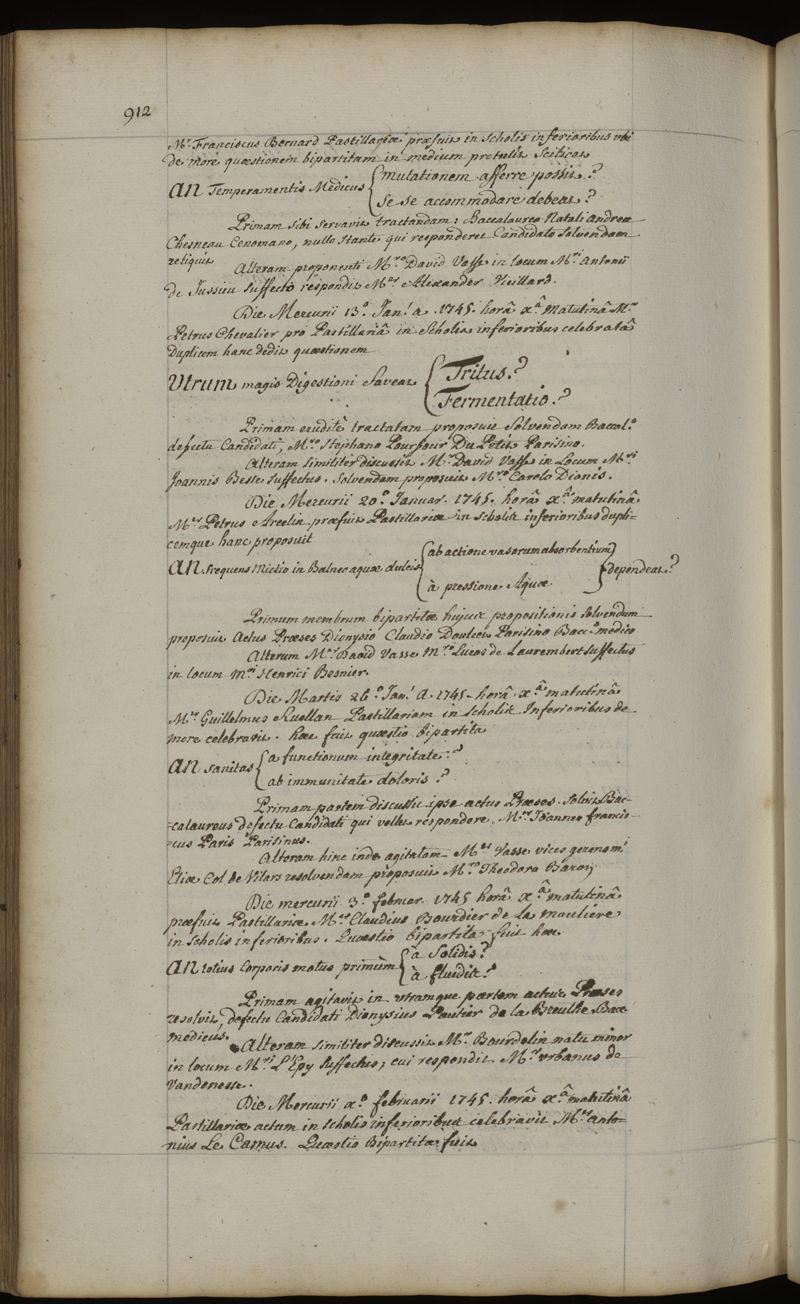 912
Mr. Franciscus Bernard Pastillariæ præfuit in Scholis inferioribus ubi
de more quæstionem bipartitam in medium protulit Scilicet
An Temperamentis Medicus { mutationem afferre possit?
se se accommodare debeat?
Primam sibi servavit tractandam: Baccalaureo Natali Andreæ
Chesneau Cenomano, nullo stante qui responderet Candidato solvendam
reliquit
Alteram proponenti Mro David Vasse in locum Mri Antonii
de Jussieu suffecto respondit Mer Alexander Vieillard.
Die Mercurii 13o Jan! a. 1745. horâ xâ matutinâ Mer
Petrus Chevalier pro Pastillariâ in Scholis inferioribus celebratâ
Duplicem hanc dedit quæstionem
Utrum magis Digestioni faveat { Tritus?
Fermentatio?
Primam eruditè tractatam proposuit solvendam Baccal.o
defectu Candidati, Mro Stephano Pourfour Du Petit Parisino.
Alteram similiter discussit Mr David Vasse in Locum Mri
Joannis Beste suffectus. solvendam proposuit Mro Carolo Dionis.
Die Mercurii 20o Januar. 1745. horâ xâ matutinâ
Mer Petrus Arcelin præfuit Pastillariæ in scholis inferioribus dupli=
cemque hanc proposuit
An frequens Mictio in Balneo aquæ dulcis { ab actione vasorum absorbentium } dependeat?
à pressione Aquæ
Primum membrum bipartitæ hujus propositionis solvendum
proposuit Actus Præses Dionysio Claudio Doulcet Parisino Bacc.o medico
Alterum Mr David Vasse Mro Lucas de Laurembert suffectus
in locum Mri Henrici Besnier.
Die Martis 26o Jan! A. 1745. horâ xâ matutinâ
Mer Guillelmus Ruellan Pastillariam in scholis Inferioribus de
more celebravit. hæc fuit quæstio bipartita
An sanitas { a functionum integritate?
ab immunitate doloris?
Primam partem discussit ipse actus Præses. solvit Bac-
=calaureus defectu Candidati qui vellet respondere, Mer Joannes francis-
=cus Paris Parisinus.
Alteram hinc inde agitatam Mer Vasse vices gerens mri
Eliæ Col de Vilars resolvendam proposuit Mro Theodoro Baron
Die mercurii 3o februar. 1745 horâ xâ matutinâ
præfuit Pastillariæ Mer Claudius Bourdier de la mouliere
in Scholis inferioribus. Quæstio bipartita fuit hæc.
An totius Corporis motus primùm { à Solidis?
à fluidis?
Primam agitavit in utramque partem actus Præses
resolvit, defectu Candidati Dionysius Pautier de la Breuille Bacc
medicus.
Alteram similiter discussit Mr Bourdelin natu minor
in locum Mri L'Epy suffectus, cui respondit Mr urbanus de
Vandenesse.
Die Mercurii xo februarii 1745. horâ xâ matutinâ
Pastillariæ actum in scholis inferioribus celebravit Mer Anto=
nius Le Camus. Quæstio Bipartita fuit